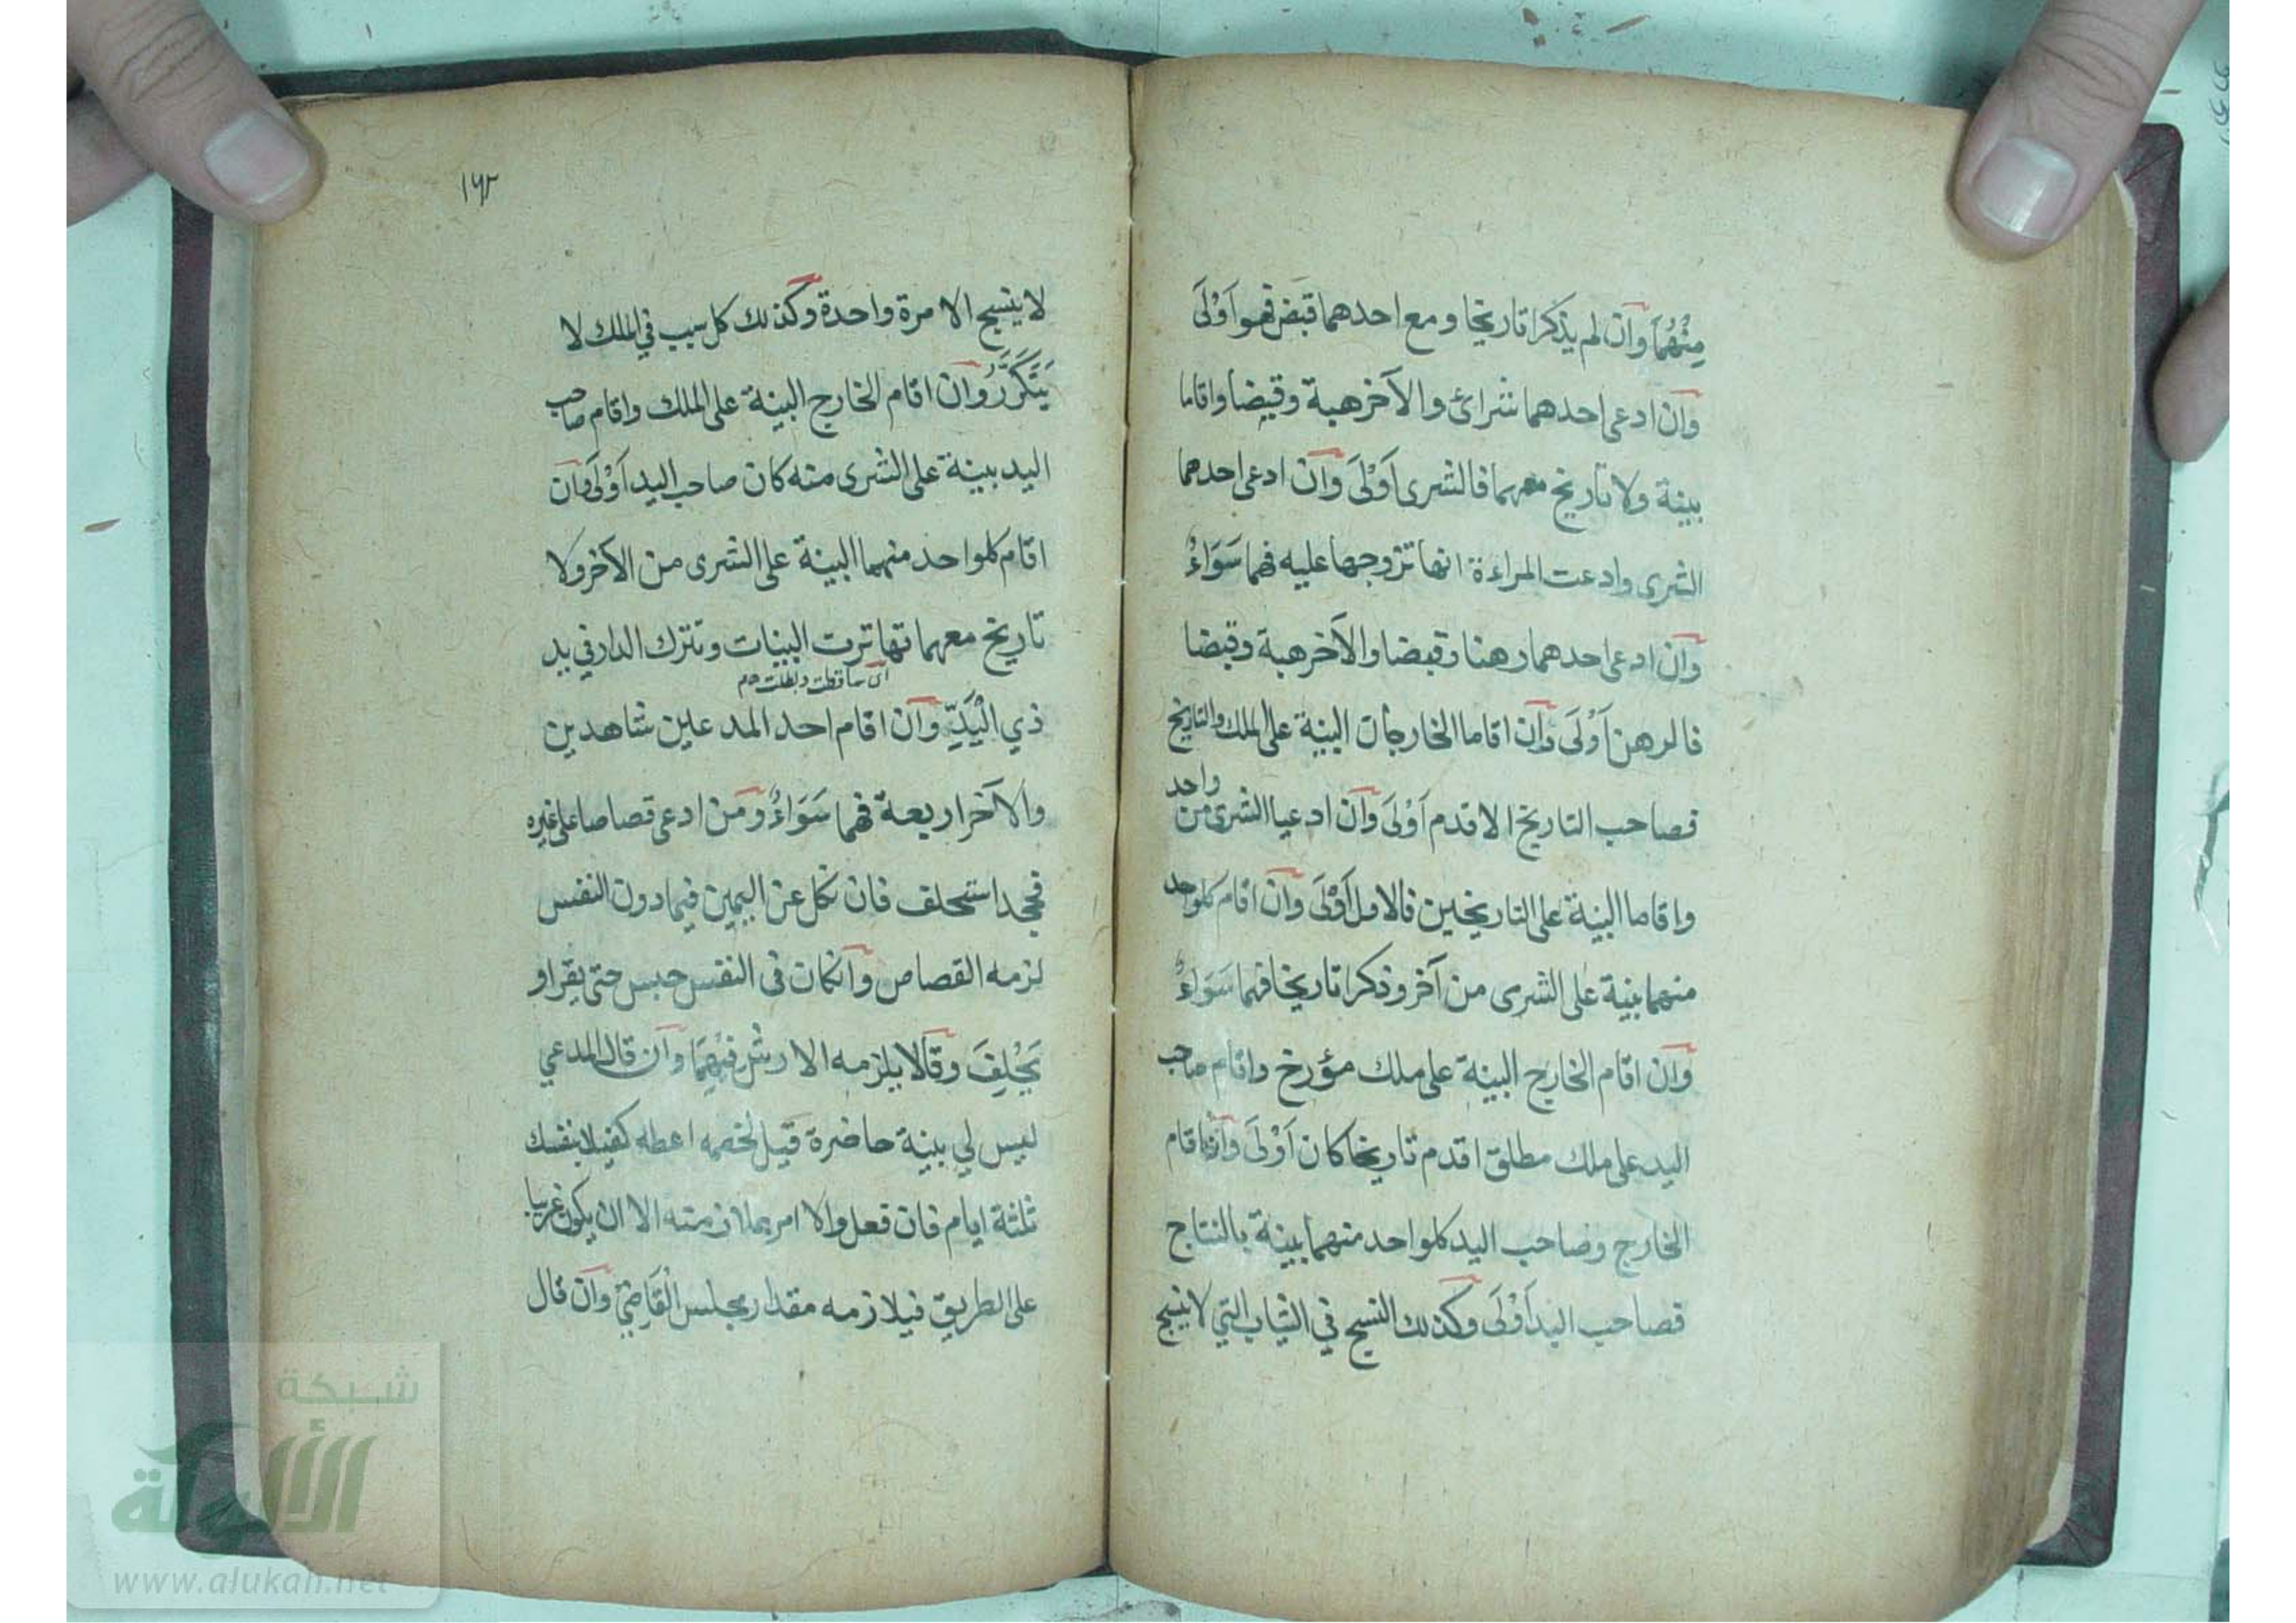 مِنْهُمَا وآن لم يذكرا تاريخا ومع احدهما قبض فهو اَوْلَى
وآن ادعى احدهما شرائ والآخر هبة وقبضا واقاما
بينة ولا تاريخ معهما فالشرى اَوْلَى وآن ادعى احدهما
الشرى وادعت المراءة انها تزوجها عليه فهما سَوَاءٌ
وآن ادعى احدهما رهنا وقبضا والآخر هبة وقبضا
فالرهن اَوْلَى وآن اقاما الخارجان البينة على الملك والتاريخ
فصاحب التاريخ الاقدم اَوْلَى وآن ادعيا الشرى من واحد
واقاما البينة على التاريخين فالاول اَوْلَى وآن اقام كلواحد
منهما بينة على الشرى من آخر وذكرا تاريخا فهما سَوَاءٌ
وآن اقام الخارج البينة على ملك مؤرخ واقام صاحب
اليد على ملك مطلق اقدم تاريخا كان اَوْلَى وآن اقام
الخارج وصاحب اليد كلواحد منهما بينة بالنتاج
فصاحب اليد اَوْلَى وكذلك النسج في الثياب التي لا ينسج
١٦٢
لا ينسج الا مرة واحدة وكذلك كل سبب في الملك لا
يَتَكَرَّرُ وآن اقام الخارج البينة على الملك واقام صاحب
اليد بينة على الشرى منه كان صاحب اليد اَوْلَى وآن
اقام كلواحد منهما البينة على الشرى من الآخر ولا
تاريخ معهما تهاترت البينات وتترك الدار في يد
اى تساقطت وبطلت
ذي الْيَدِ وآن اقام احد المدعين شاهدين
والآخر اربعة فهما سَوَاءٌ ومَن ادعى قصاصا على غيره
فجحد استحلف فان نكل عن اليمين فيما دون النفس
لزمه القصاص وآنكان فى النفس حبس حتى يقر او
يَحْلِفَ وقالا يلزمه الارش فيْهِمَا وآن قال المدعي
ليس لي بينة حاضرة قيل لخصمه اعطه كفيلا بنفسك
ثلثة ايام فان فعل والا امر بملازمته الا ان يكون غريبا
على الطريق فيلازمه مقدار مجلس الْقَاضِيْ وآن قال
شبكة
الألوكة
www.alukah.net